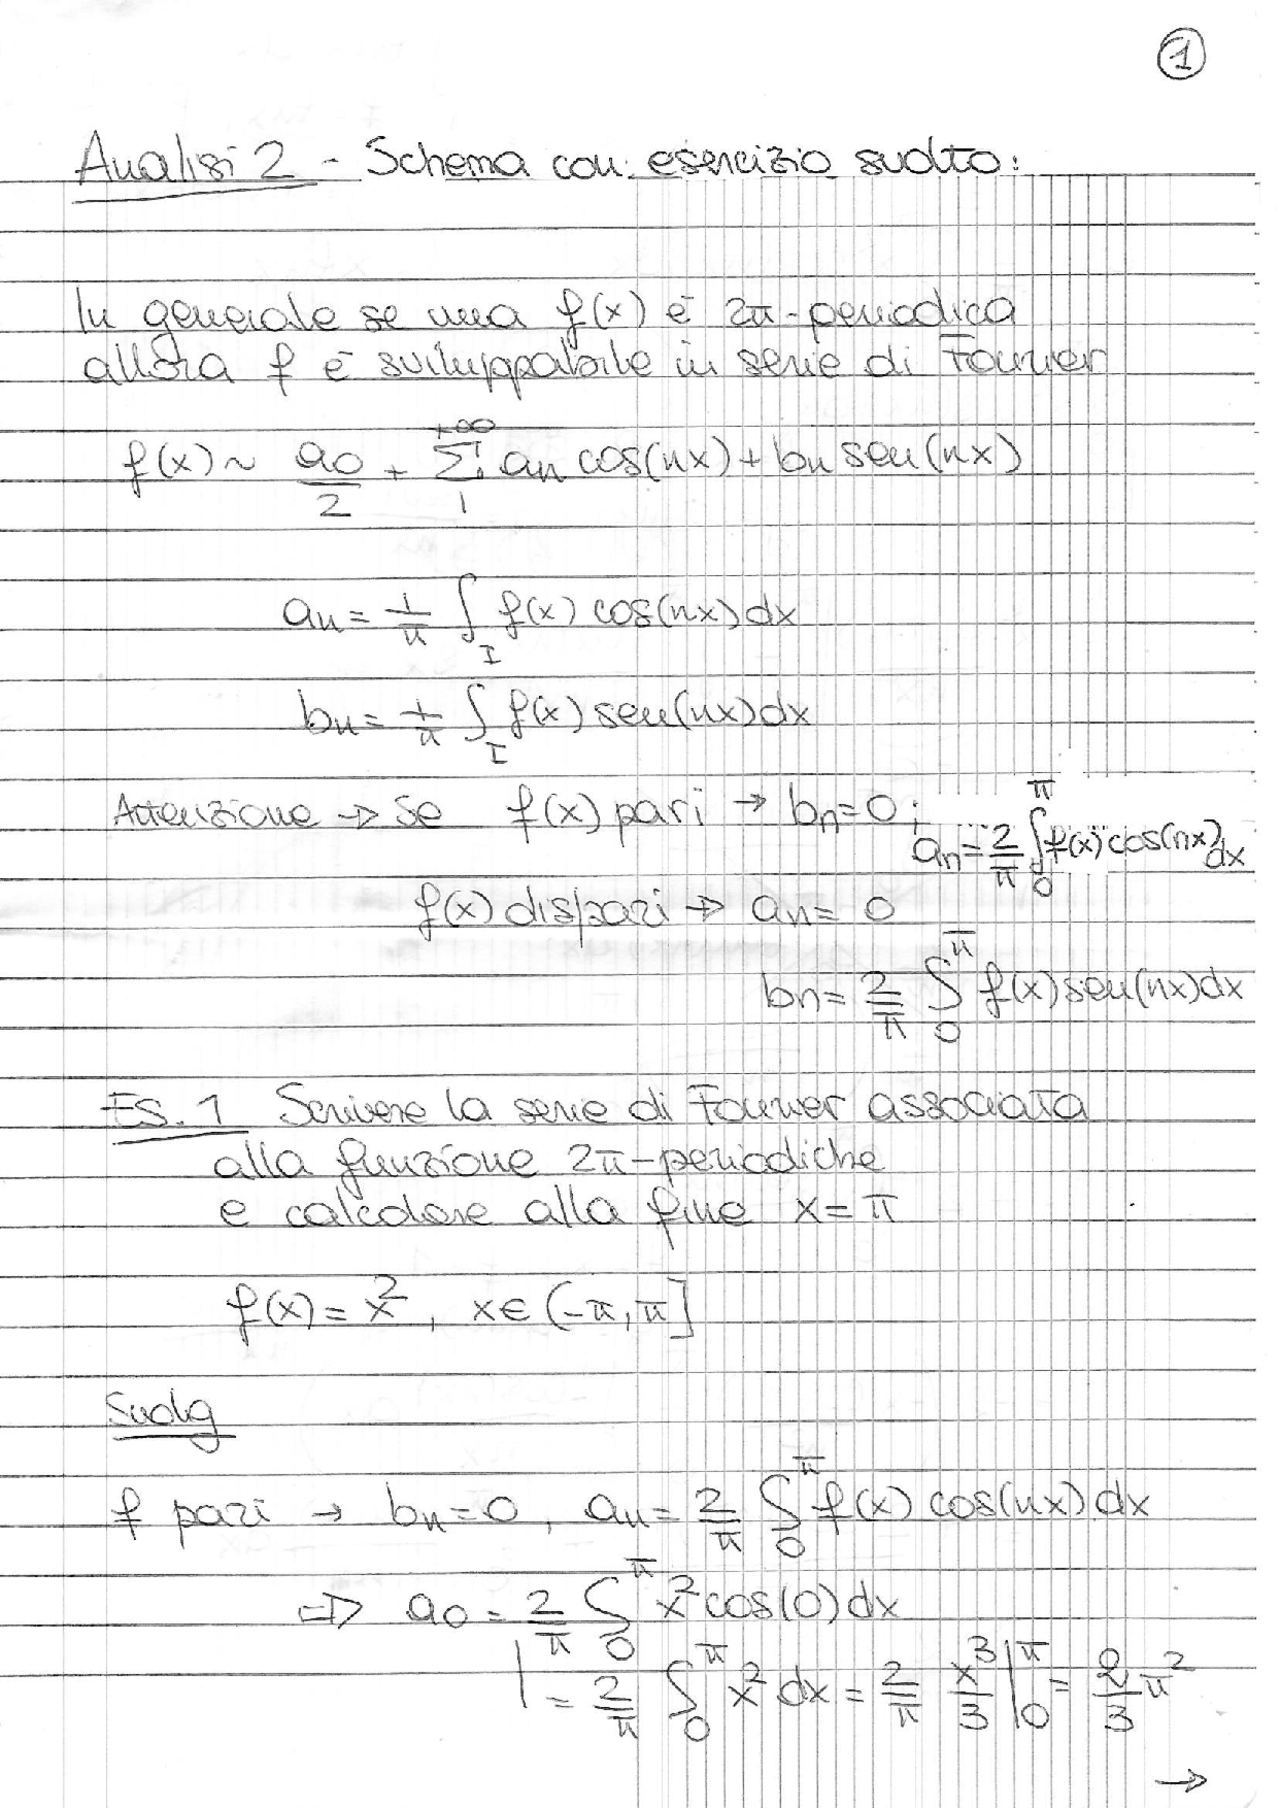 1
Analisi 2 - Schema con esercizio svolto:
In generale se una f(x) è 2π-periodica
allora f è sviluppabile in serie di Fourier
f(x) ~ a0/2 + Σ_1^{+∞} an cos(nx) + bn sen(nx)
an = 1/π ∫_I f(x) cos(nx) dx
bn = 1/π ∫_I f(x) sen(nx) dx
Attenzione → Se f(x) pari → bn = 0;
an = 2/π ∫_0^π f(x) cos(nx) dx
f(x) dispari → an = 0
bn = 2/π ∫_0^π f(x) sen(nx) dx
Es. 1 Scrivere la serie di Fourier associata
alla funzione 2π-periodiche
e calcolare alla fine x = π
f(x) = x², x ∈ (-π, π]
Svolg
f pari → bn = 0, an = 2/π ∫_0^π f(x) cos(nx) dx
⇒ a0 = 2/π ∫_0^π x² cos(0) dx
= 2/π ∫_0^π x² dx = 2/π x³/3 |_0^π = 2/3 π²
→